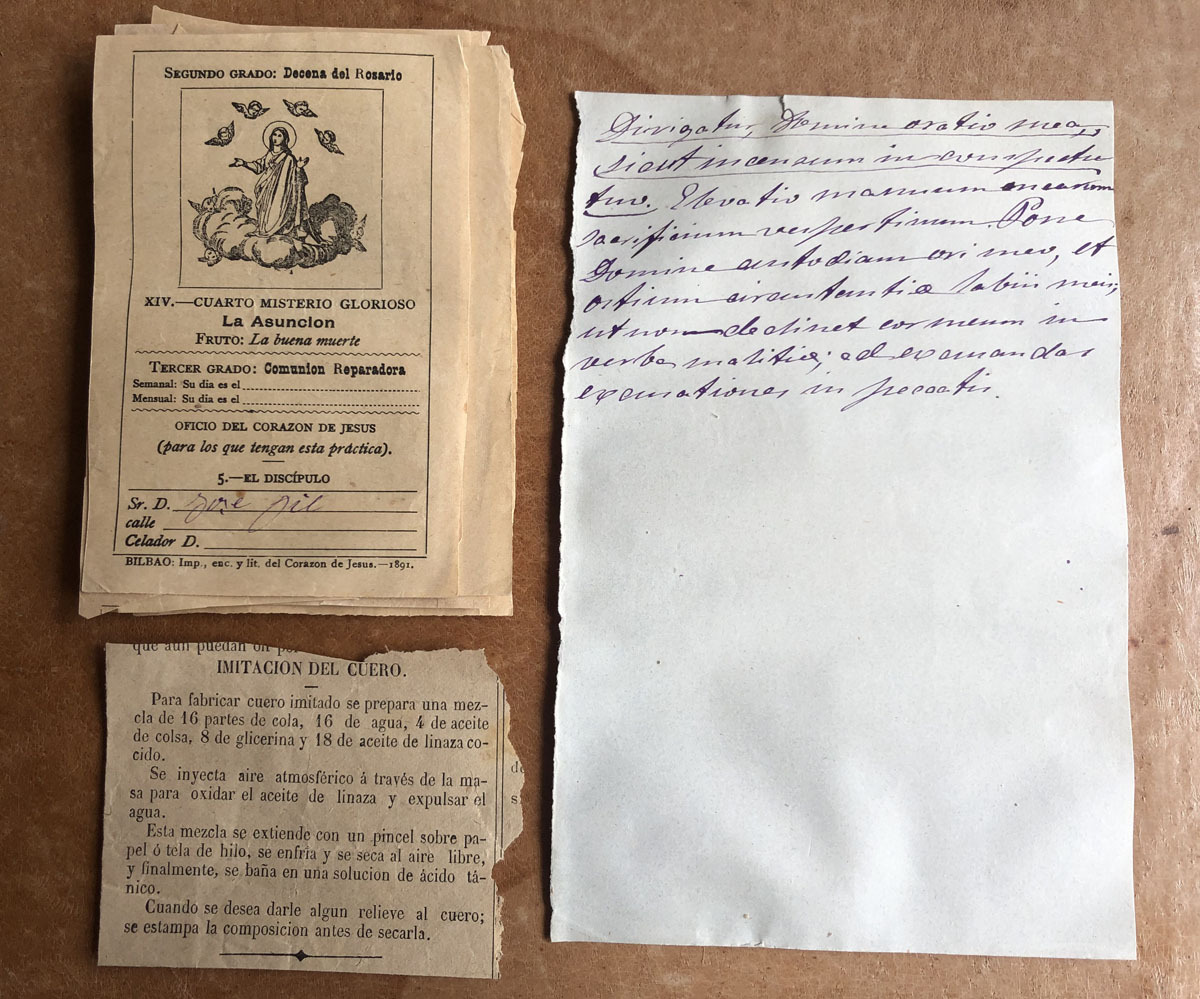 SEGUNDO GRADO: Decena del Rosario
XIV.—CUARTO MISTERIO GLORIOSO
La Asuncion
FRUTO: La buena muerte
TERCER GRADO: Comunion Reparadora
Semanal: Su dia es el
Mensual: Su dia es el
OFICIO DEL CORAZON DE JESUS
(para los que tengan esta práctica).
5.—EL DISCÍPULO
Sr. D. Jose Gil
calle
Celador D.
BILBAO: Imp., enc. y lit. del Corazon de Jesus.—1891.
que aun puedan
IMITACION DEL CUERO.
Para fabricar cuero imitado se prepara una mez-
cla de 16 partes de cola, 16 de agua, 4 de aceite
de colsa, 8 de glicerina y 18 de aceite de linaza co-
cido.
Se inyecta aire atmosférico á través de la ma-
sa para oxidar el aceite de linaza y expulsar el
agua.
Esta mezcla se extiende con un pincel sobre pa-
pel ó tela de hilo, se enfria y se seca al aire libre,
y finalmente, se baña en una solucion de ácido tá-
nico.
Cuando se desea darle algun relieve al cuero;
se estampa la composicion antes de secarla.
Dirigatur, Domine oratio mea,
sicut incensum in conspectu
tuo. Elevatio manuum mearum
sacrificium vespertinum. Pone
Domine custodiam ori meo, et
ostium circustantiæ labiis meis;
ut non declinet cor meum in
verba malitiæ; ad excusandas
excusationes in peccatis.